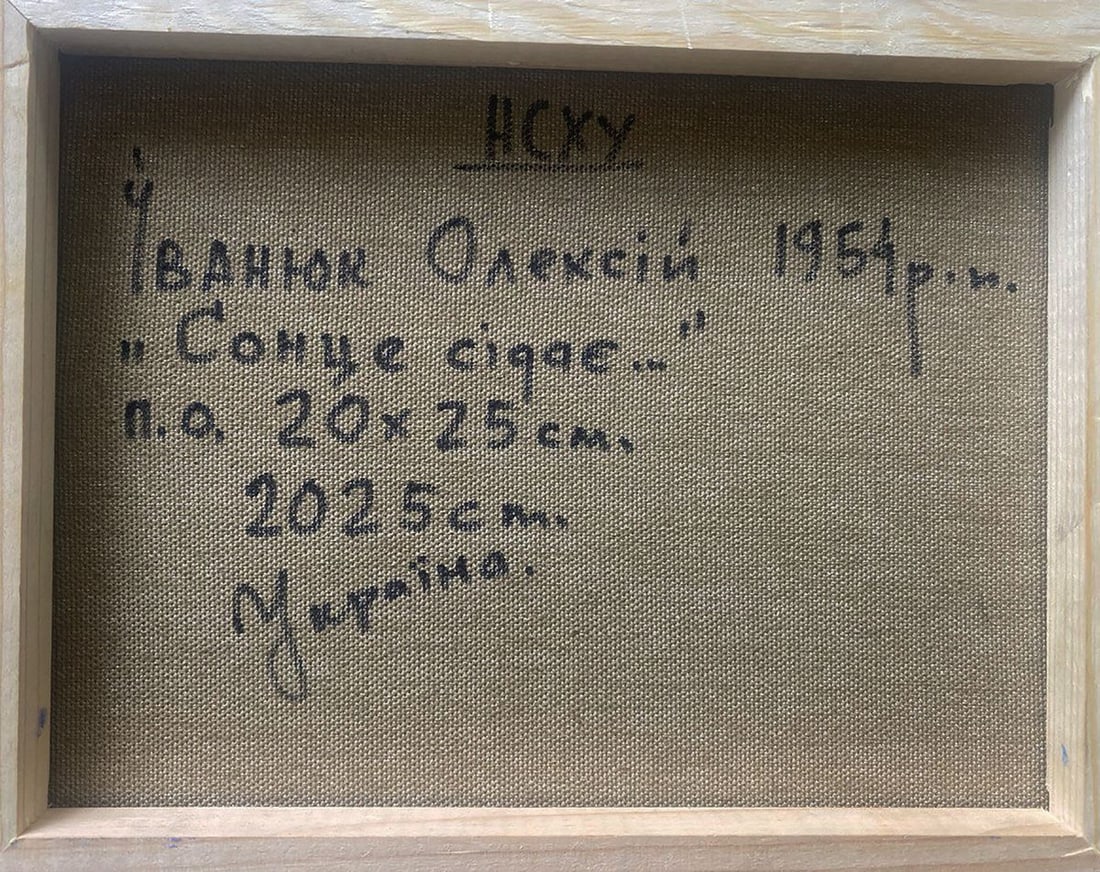 НСХУ
Іванюк Олексій 1954 р.н.
„Сонце сідає..."
п.о. 20х25 см.
2025 ст.
Україна.